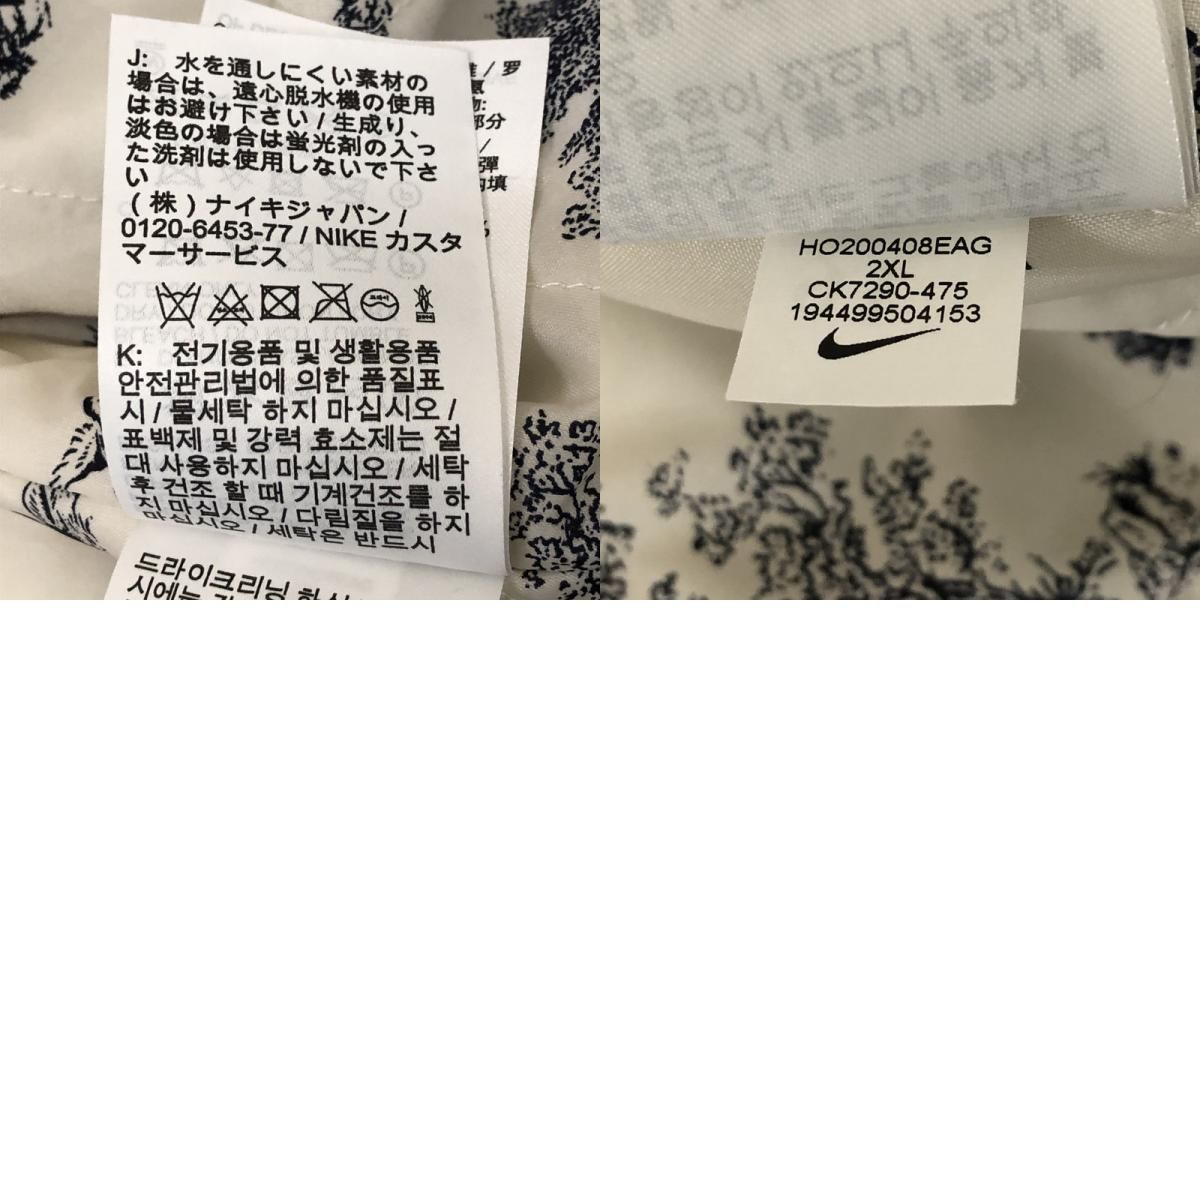 J: 水を通しにくい素材の
場合は、遠心脱水機の使用
はお避け下さい / 生成り、
淡色の場合は蛍光剤の入っ
た洗剤は使用しないで下さ
い
(株) ナイキジャパン /
0120-6453-77 / NIKE カスタ
マーサービス
K: 전기용품 및 생활용품
안전관리법에 의한 품질표
시 / 물세탁 하지 마십시오 /
표백제 및 강력 효소제는 절
대 사용하지 마십시오 / 세탁
후 건조 할 때 기계건조를 하
지 마십시오 / 다림질을 하지
마십시오 / 세탁은 반드시
드라이크리닝
/ 罗
部分
/
彈
填
HO200408EAG
2XL
CK7290-475
194499504153